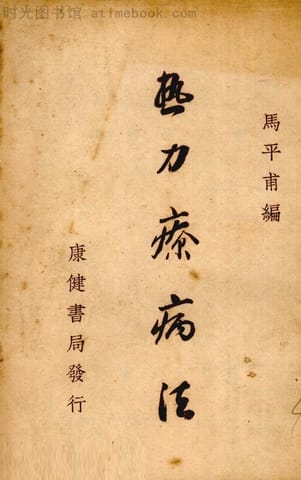 时光图书馆 atimebook.com
馬平甫編
热力療病法
康健書局發行